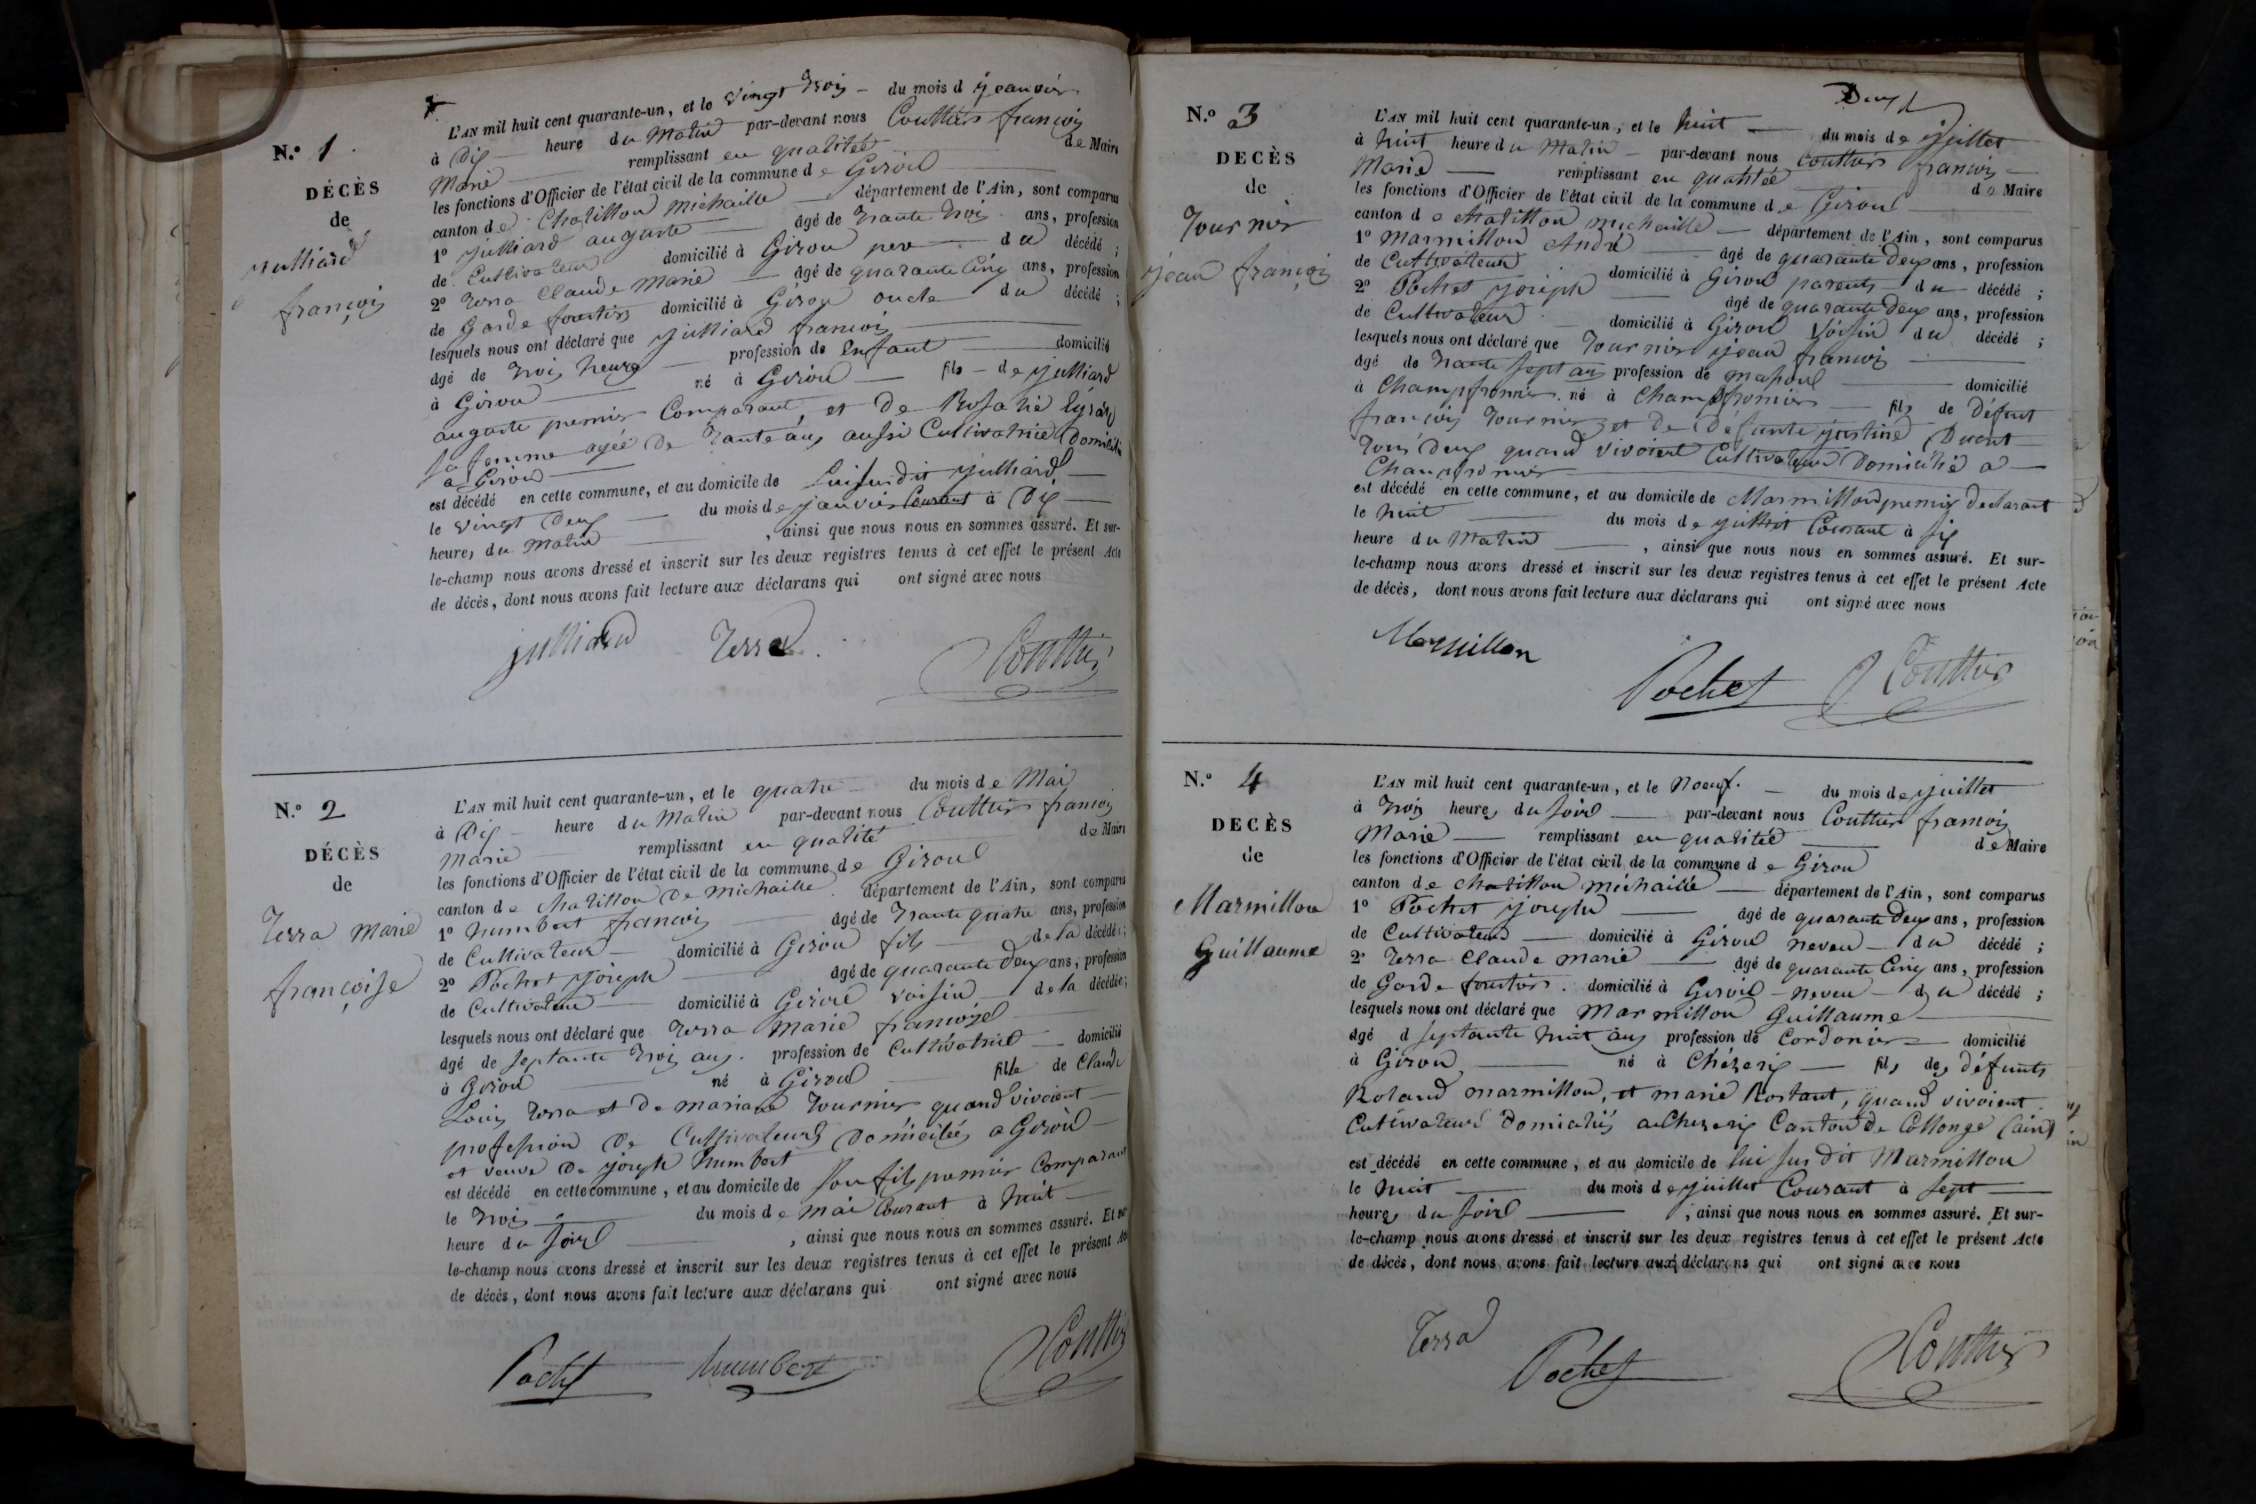 N.° 1
DÉCÈS
de
julliard
françois
L'AN mil huit cent quarante-un, et le vingt trois du mois d jeanvier
à Dix heure du Matin par-devant nous Couttier françois
Marie remplissant en qualitée de Maire
les fonctions d'Officier de l'état civil de la commune de Giron
canton de Chatillon Michaille département de l'Ain, sont comparus
1° julliard auguste âgé de trante trois ans, profession
de Cultivateur domicilié à Giron pere du décédé ;
2° Terra Claude Marie âgé de quarante Cinq ans, profession
de Garde foretier domicilié à Giron oncle du décédé ;
lesquels nous ont déclaré que julliard françois
âgé de trois heure profession de Enfant domicilié
à Giron né à Giron fils de julliard
auguste premier Comparant, et de Rosalie
sa femme agée de trante ans aussi Cultivatrice Domiciliée
a Giron
est décédé en cette commune, et au domicile de lui susdit julliard
le vingt Deux du mois de janvier Courant à Dix
heures du Matin , ainsi que nous nous en sommes assuré. Et sur-
le-champ nous avons dressé et inscrit sur les deux registres tenus à cet effet le présent Acte
de décès, dont nous avons fait lecture aux déclarans qui ont signé avec nous
julliard Terra Couttier
N.° 2
DÉCÈS
de
Terra Marie
françoise
L'AN mil huit cent quarante-un, et le quatre du mois de Mai
à Dix heure du Matin par-devant nous Couttier françois
Marie remplissant en qualité de Maire
les fonctions d'Officier de l'état civil de la commune de Giron
canton de Chatillon De Michaille département de l'Ain, sont comparus
1° humbert françois âgé de trante quatre ans, profession
de Cultivateur domicilié à Giron fils de la décédée ;
2° Pochet joseph âgé de quarante Deux ans, profession
de Cultivateur domicilié à Giron voisin de la décédée ;
lesquels nous ont déclaré que Terra Marie françoise
âgé de septante trois ans profession de Cultivatrice domicilié
à Giron né à Giron fille de Claude
Louis Terra et de mariane Tournier quand vivoient
profession de Cultivateurs Domiciliés a Giron
et veuve de joseph humbert
est décédé en cette commune, et au domicile de son fils premier Comparant
le trois du mois de mai Courant à huit
heure du soir , ainsi que nous nous en sommes assuré. Et sur-
le-champ nous avons dressé et inscrit sur les deux registres tenus à cet effet le présent Acte
de décès, dont nous avons fait lecture aux déclarans qui ont signé avec nous
Pochet humbert Couttier
Deux
N.° 3
DECÈS
de
Tournier
jean françois
L'AN mil huit cent quarante-un, et le huit du mois de juillet
à huit heure du Matin par-devant nous Couttier françois
Marie remplissant en qualitée de Maire
les fonctions d'Officier de l'état civil de la commune de Giron
canton de Chatillon michaille département de l'Ain, sont comparus
1° Marmillon André âgé de quarante Deux ans, profession
de Cultivateur domicilié à Giron parents du décédé ;
2° Pochet joseph âgé de quarante Deux ans, profession
de Cultivateur domicilié à Giron voisin du décédé ;
lesquels nous ont déclaré que Tournier jean françois
âgé de trante sept ans profession de masson domicilié
à Champfromier né à Champfromier fils de Défunt
françois Tournier et de Défunte justine Ducret
tous deux quand vivoient Cultivateur Domicilié a
Champfromier
est décédé en cette commune, et au domicile de Marmillon premier declarant
le huit du mois de juillet Courant à six
heure du Matin , ainsi que nous nous en sommes assuré. Et sur-
le-champ nous avons dressé et inscrit sur les deux registres tenus à cet effet le présent Acte
de décès, dont nous avons fait lecture aux déclarans qui ont signé avec nous
Marmillon
Pochet Couttier
N.° 4
DECÈS
de
Marmillon
Guillaume
L'AN mil huit cent quarante-un, et le Noeuf. du mois de juillet
à trois heures du soir par-devant nous Couttier françois
Marie remplissant en qualitée de Maire
les fonctions d'Officier de l'état civil de la commune de Giron
canton de Chatillon michaille département de l'Ain, sont comparus
1° Pochet joseph âgé de quarante Deux ans, profession
de Cultivateur domicilié à Giron neveu du décédé ;
2° Terra Claude Marie âgé de quarante Cinq ans, profession
de Garde foretier. domicilié à Giron neveu du décédé ;
lesquels nous ont déclaré que Marmillon Guillaume
âgé d septante huit ans profession de Cordonier domicilié
à Giron né à Chézery fils des défunts
Roland marmillon, et marie Rostant, quand vivoient
Cutivateurs Domiciliés a Chezery Canton de Collonge (ain)
est décédé en cette commune, et au domicile de lui sus dit Marmillon
le huit du mois de juillet Courant à sept
heures du soir , ainsi que nous nous en sommes assuré. Et sur-
le-champ nous avons dressé et inscrit sur les deux registres tenus à cet effet le présent Acte
de décès, dont nous avons fait lecture aux déclarans qui ont signé avec nous
Terra
Pochet Couttier